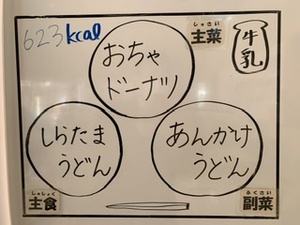 623kcal
しゅさい
主菜
牛乳
おちゃ
ドーナツ
しらたま
うどん
あんかけ
うどん
しゅしょく
主食
ふくさい
副菜